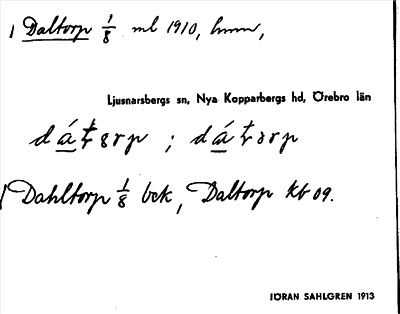 1 Daltorp 1/8 ml 1910, hmm,
Ljusnarsbergs sn, Nya Kopparbergs hd, Örebro län
dát̵orp ; dát̵orp
1 Dahltorp 1/8 bek, Daltorp Kb 09.
JÖRAN SAHLGREN 1913